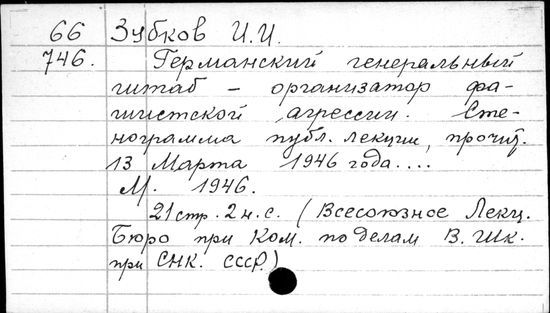 66 Зубков И.И.
746. Германский генеральный
штаб – организатор фа-
шистской агрессии. Сте-
нограмма публ. лекции, прочит.
13 Марта 1946 года....
М. 1946.
21 стр. 2 н.с. (Всесоюзное Лекц.
Бюро при Ком. по делам В. Шк.
при СНК. СССР.)